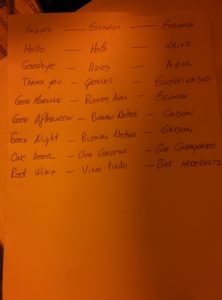 INGLES — ESPAÑOL — EUSKERA
Hello — Hola — KAIXO
Goodbye — Adios — AGUR
THANK YOU — GRACIAS — ESKERRIKASKO
GOOD MORNING — BUENOS DIAS — EGUNON
GOOD AFTERNOON — BUENAS — GABON
GOOD NIGHT — BUENAS — GABON
ONE BEER — UNA CERVEZA — BAT
Red WINE — VINO TINTO — BAT